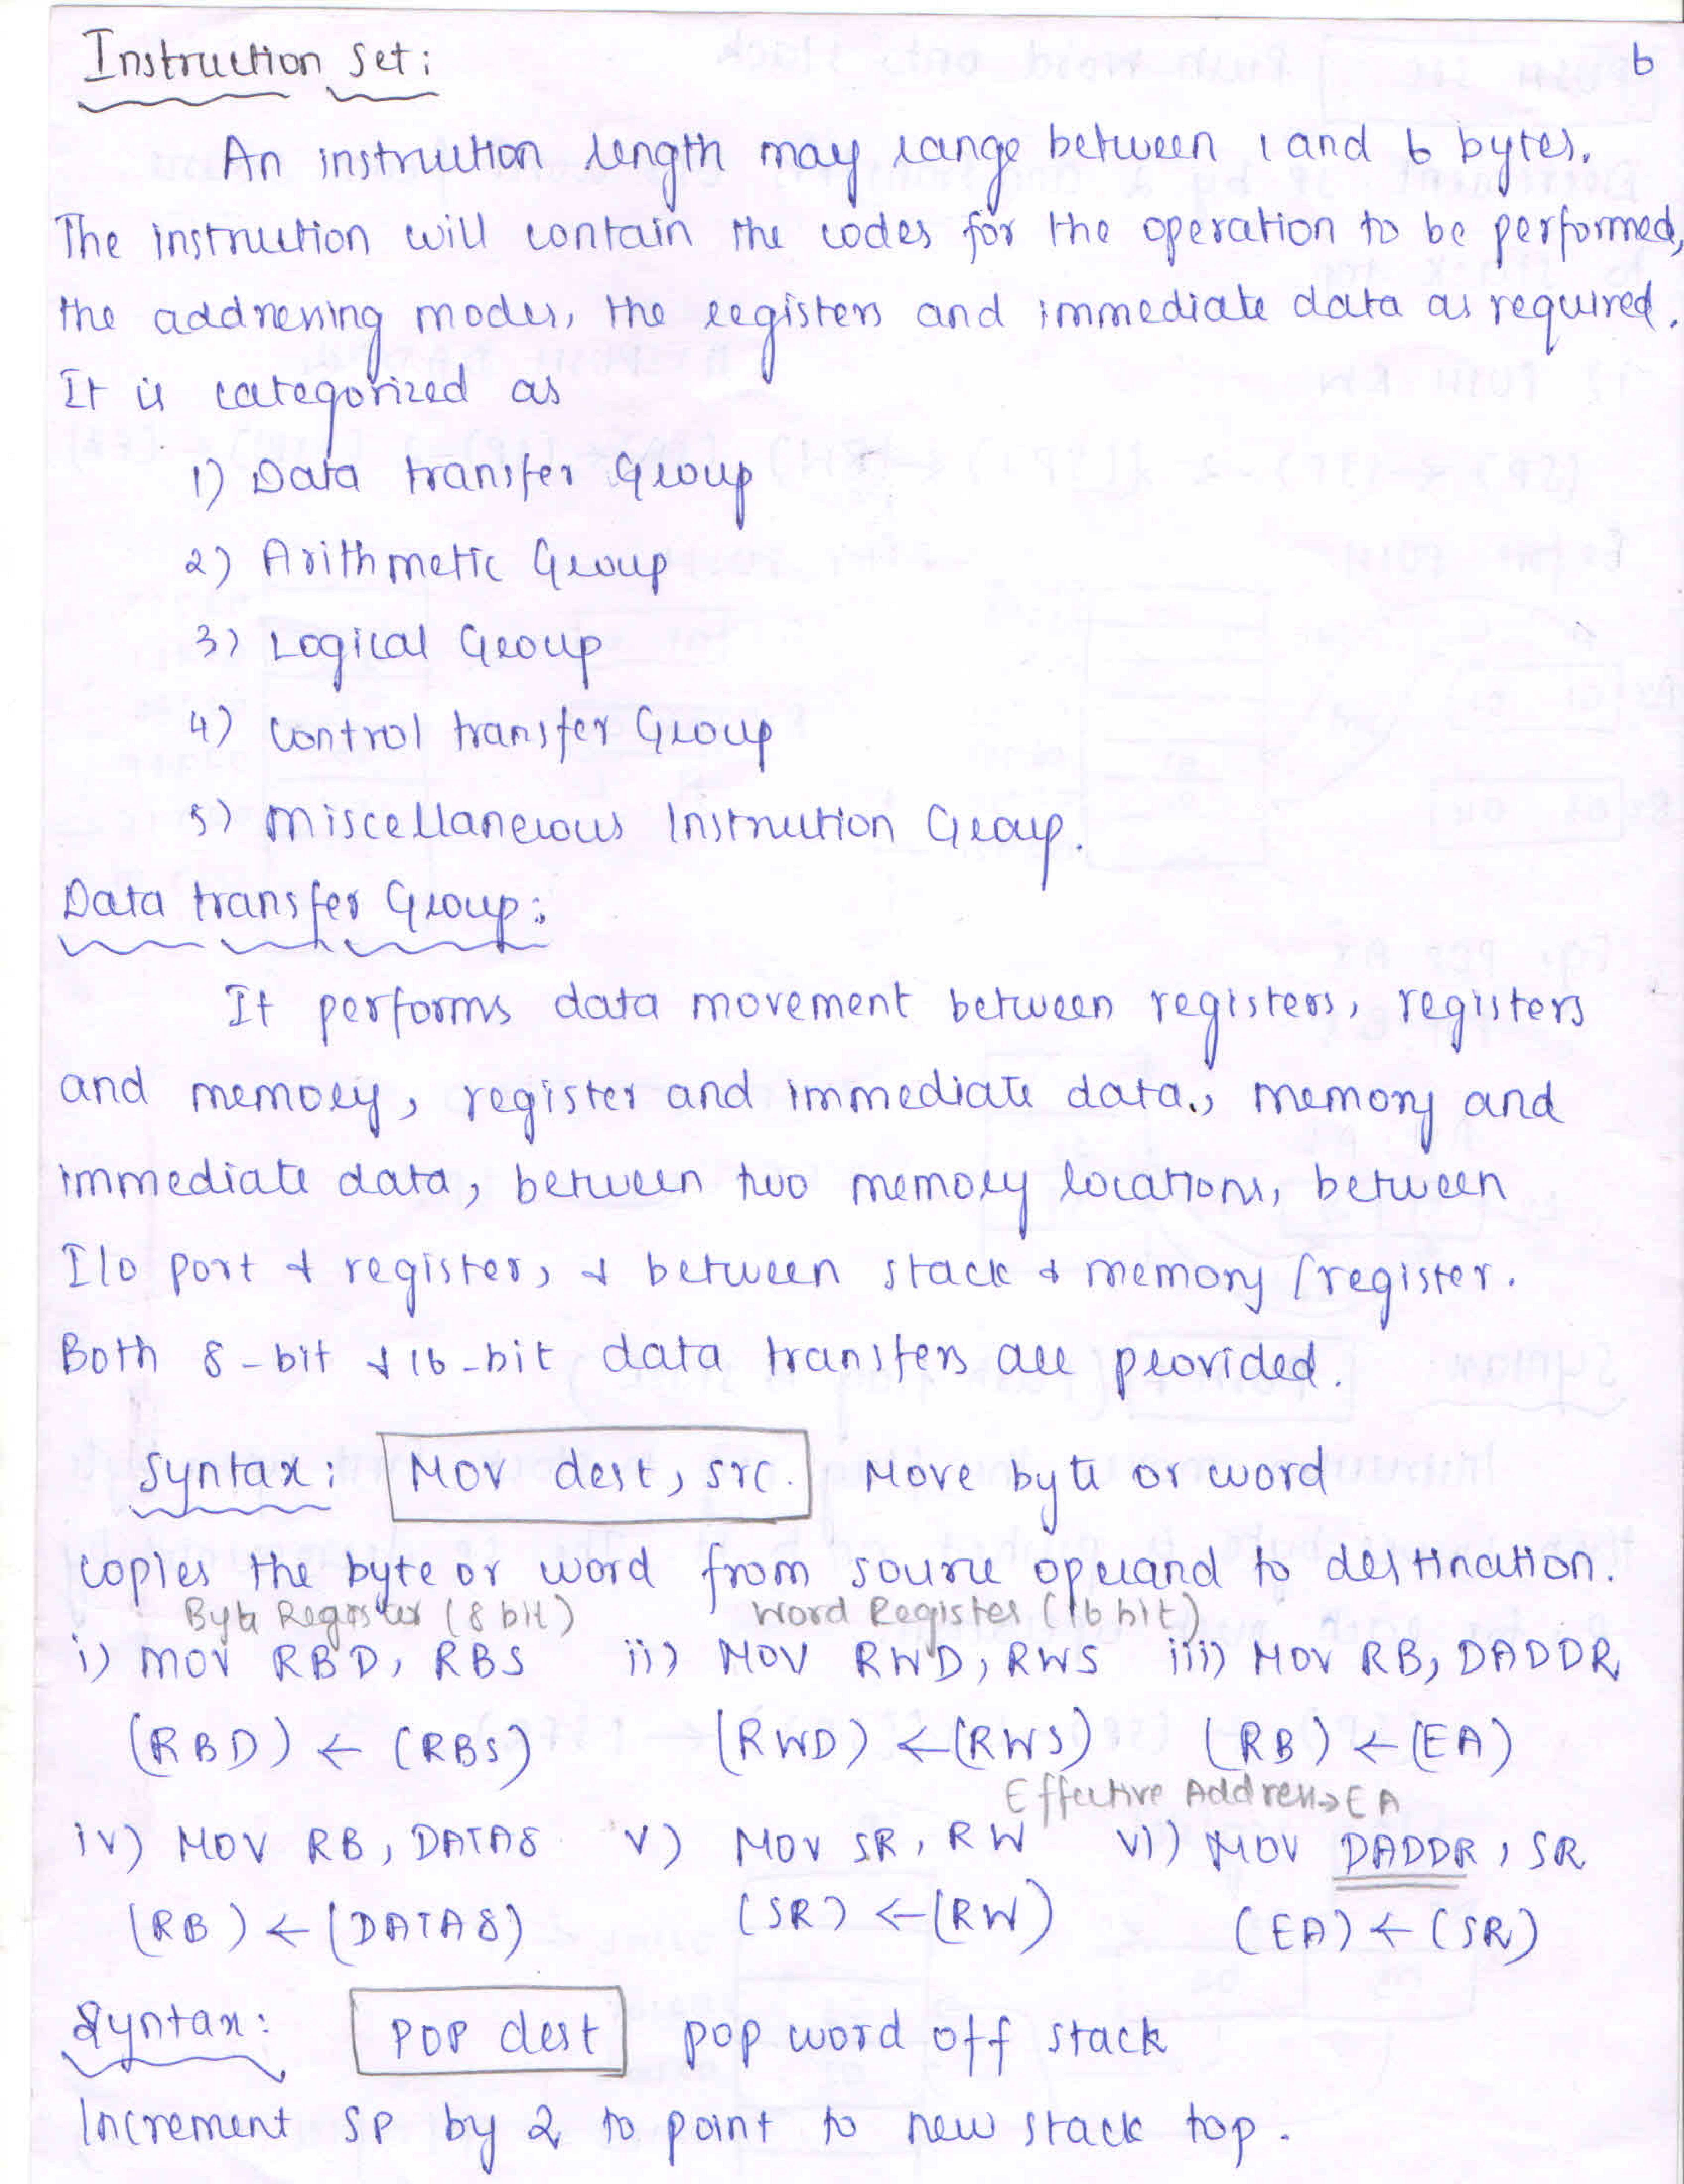 Instruction Set:
6
An instruction length may range between 1 and 6 bytes.
The instruction will contain the codes for the operation to be performed,
the addressing modes, the registers and immediate data as required.
It is categorized as
1) Data transfer Group
2) Arithmetic Group
3) Logical Group
4) Control transfer Group
5) Miscellaneious Instruction Group.
Data transfer Group:
It performs data movement between registers, registers
and memory, register and immediate data., memory and
immediate data, between two memory locations, between
I/O port & register, & between stack & memory / register.
Both 8-bit & 16-bit data transfers are provided.
Syntax: MOV dest, src. Move byte or word
copies the byte or word from source operand to destination.
Byte Register (8 bit) Word Register (16 bit)
i) MOV RBD, RBS ii) MOV RWD, RWS iii) MOV RB, DADDR
(RBD) ← (RBS) (RWD) ← (RWS) (RB) ← (EA)
Effective Address → EA
iv) MOV RB, DATA8 v) MOV SR, RW vi) MOV DADDR, SR
(RB) ← (DATA8) (SR) ← (RW) (EA) ← (SR)
Syntax: POP dest pop word off stack
Increment SP by 2 to point to new stack top.